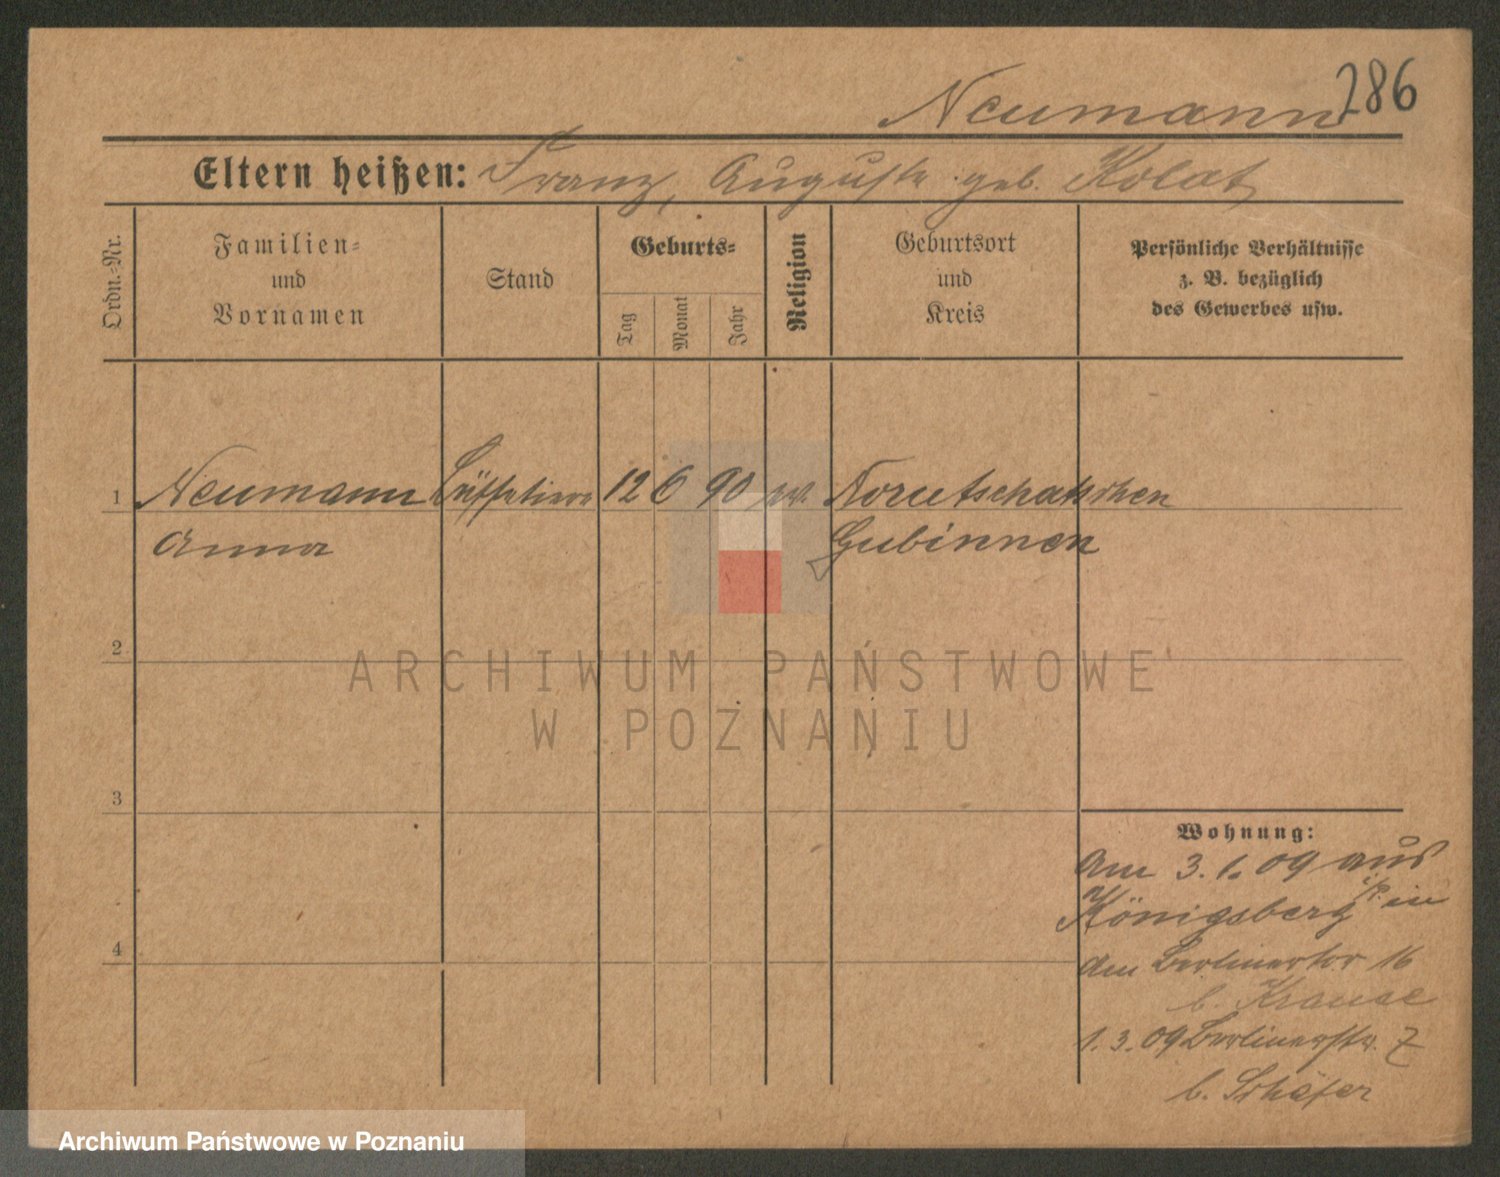 286
Neumann
Eltern heißen: Franz, Auguste geb. Kolat
Ordn.=Nr.
Familien=
und
Vornamen
Stand
Geburts=
Tag
Monat
Jahr
Religion
Geburtsort
und
Kreis
Persönliche Verhältnisse
z. B. bezüglich
des Gewerbes usw.
1 Neumann Büffetiere 12 6 90 ev. Norutschatschen
Anna Gubinnen
2
3
4
Wohnung:
Am 3. 1. 09 aus
Königsberg i/P. in
Am Berlinertor 16
b. Krause
1. 3. 09 Berlinerstr. 7
b. Schäfer
ARCHIWUM PAŃSTWOWE
W POZNANIU
Archiwum Państwowe w Poznaniu